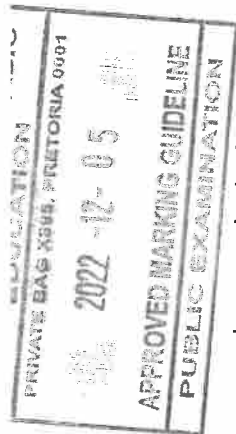 PRIVATE BAG X895, PRETORIA 0001
2022 -12- 05
APPROVED MARKING GUIDELINE
PUBLIC EXAMINATION